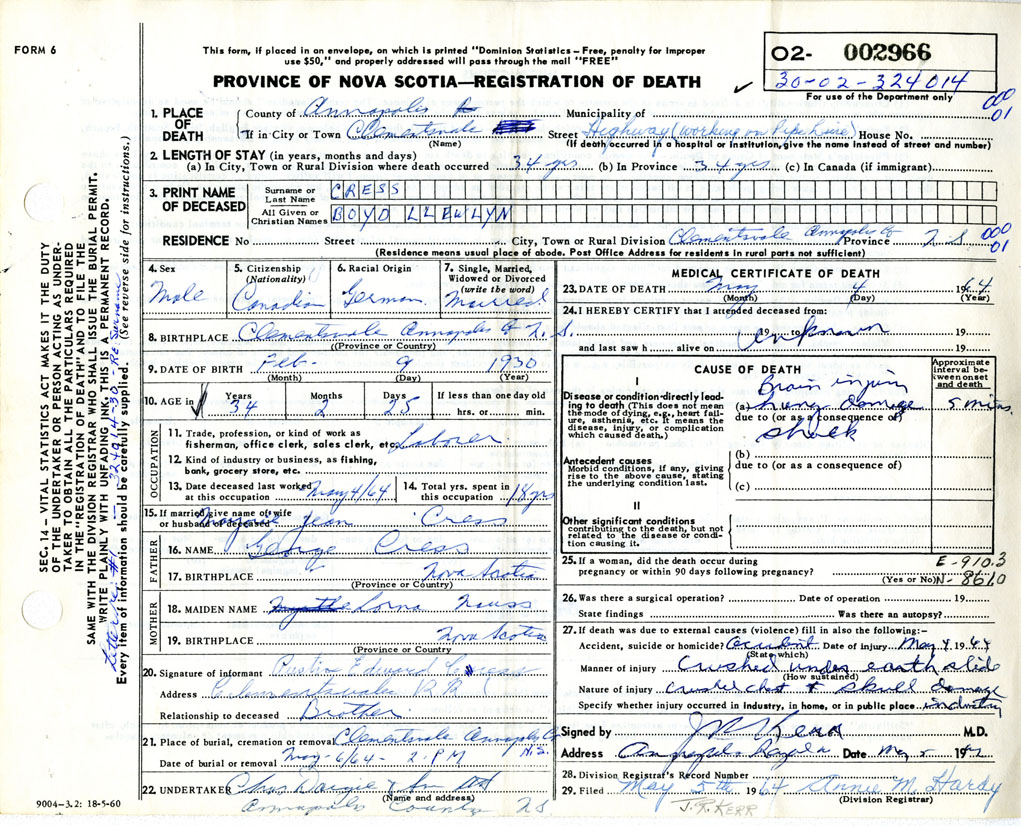 FORM 6
This form, if placed in an envelope, on which is printed "Dominion Statistics – Free, penalty for improper
use $50," and properly addressed will pass through the mail "FREE"
PROVINCE OF NOVA SCOTIA—REGISTRATION OF DEATH
O2- 002966
30-02-324014
For use of the Department only
000
01
1. PLACE OF DEATH
County of Annapolis
Municipality of
If in City or Town Clementsvale Street Highway (working on Pipe Line) House No.
(Name) (If death occurred in a hospital or institution, give the name instead of street and number)
2. LENGTH OF STAY (in years, months and days)
(a) In City, Town or Rural Division where death occurred 34 yrs (b) In Province 34 yrs (c) In Canada (if immigrant)
3. PRINT NAME OF DECEASED
Surname or Last Name CRESS
All Given or Christian Names BOYD LLEWLYN
RESIDENCE No Street City, Town or Rural Division Clementsvale Annapolis Co Province N.S.
000
01
(Residence means usual place of abode. Post Office Address for residents in rural parts not sufficient)
4. Sex
Male
5. Citizenship
(Nationality)
Canadian
6. Racial Origin
German
7. Single, Married, Widowed or Divorced
(write the word)
Married
8. BIRTHPLACE Clementsvale Annapolis Co N.S.
(Province or Country)
9. DATE OF BIRTH Feb. 9 1930
(Month) (Day) (Year)
10. AGE in Years Months Days If less than one day old
34 2 25 hrs. or min.
OCCUPATION
11. Trade, profession, or kind of work as
fisherman, office clerk, sales clerk, etc. Laborer
12. Kind of industry or business, as fishing,
bank, grocery store, etc.
13. Date deceased last worked
at this occupation May 4/64
14. Total yrs. spent in
this occupation 18 yrs
15. If married give name of wife
or husband of deceased Marjorie Jean Cress
FATHER
16. NAME George Cress
17. BIRTHPLACE Nova Scotia
(Province or Country)
MOTHER
18. MAIDEN NAME Lorna Nauss
19. BIRTHPLACE Nova Scotia
(Province or Country)
20. Signature of informant Edward Cress
Address Clementsvale RR
Relationship to deceased Brother
21. Place of burial, cremation or removal Clementsvale Annapolis Co N.S.
Date of burial or removal May-6/64- 2 PM
22. UNDERTAKER Chas Dargie & Son Ltd
(Name and address)
Annapolis County NS
9004–3.2: 18-5-60
MEDICAL CERTIFICATE OF DEATH
23. DATE OF DEATH May 4 1964
(Month) (Day) (Year)
24. I HEREBY CERTIFY that I attended deceased from:
19 to 19
Unknown
and last saw h alive on 19
CAUSE OF DEATH
Approximate interval between onset and death
I
Disease or condition directly leading to death (This does not mean the mode of dying, e.g., heart failure, asthenia, etc. It means the disease, injury, or complication which caused death.)
Brain injury
(a) Lung damage 5 mins
due to (or as a consequence of)
Shock
Antecedent causes
Morbid conditions, if any, giving rise to the above cause, stating the underlying condition last.
(b)
due to (or as a consequence of)
(c)
II
Other significant conditions
contributing to the death, but not related to the disease or condition causing it.
25. If a woman, did the death occur during
pregnancy or within 90 days following pregnancy?
(Yes or No)
E-910.3
N-861.0
26. Was there a surgical operation? Date of operation 19
State findings Was there an autopsy?
27. If death was due to external causes (violence) fill in also the following:–
Accident, suicide or homicide? Accident Date of injury May 4 1964
(State which)
Manner of injury Crushed under earth slide
(How sustained)
Nature of injury crushed chest & skull damage
Specify whether injury occurred in industry, in home, or in public place industry
Signed by J R Kerr M.D.
Address Annapolis Royal Date May 5 19
28. Division Registrar's Record Number
29. Filed May 5th 1964 Annie M. Hardy
(Division Registrar)
J. R. KERR
SEC. 14 – VITAL STATISTICS ACT MAKES IT THE DUTY
OF THE UNDERTAKER OR PERSON ACTING AS UNDER-
TAKER TO OBTAIN ALL THE PARTICULARS REQUIRED
IN THE "REGISTRATION OF DEATH" AND TO FILE THE
SAME WITH THE DIVISION REGISTRAR WHO SHALL ISSUE THE BURIAL PERMIT.
WRITE PLAINLY WITH UNFADING INK, THIS IS A PERMANENT RECORD.
Every item of information should be carefully supplied. (See reverse side for instructions.)